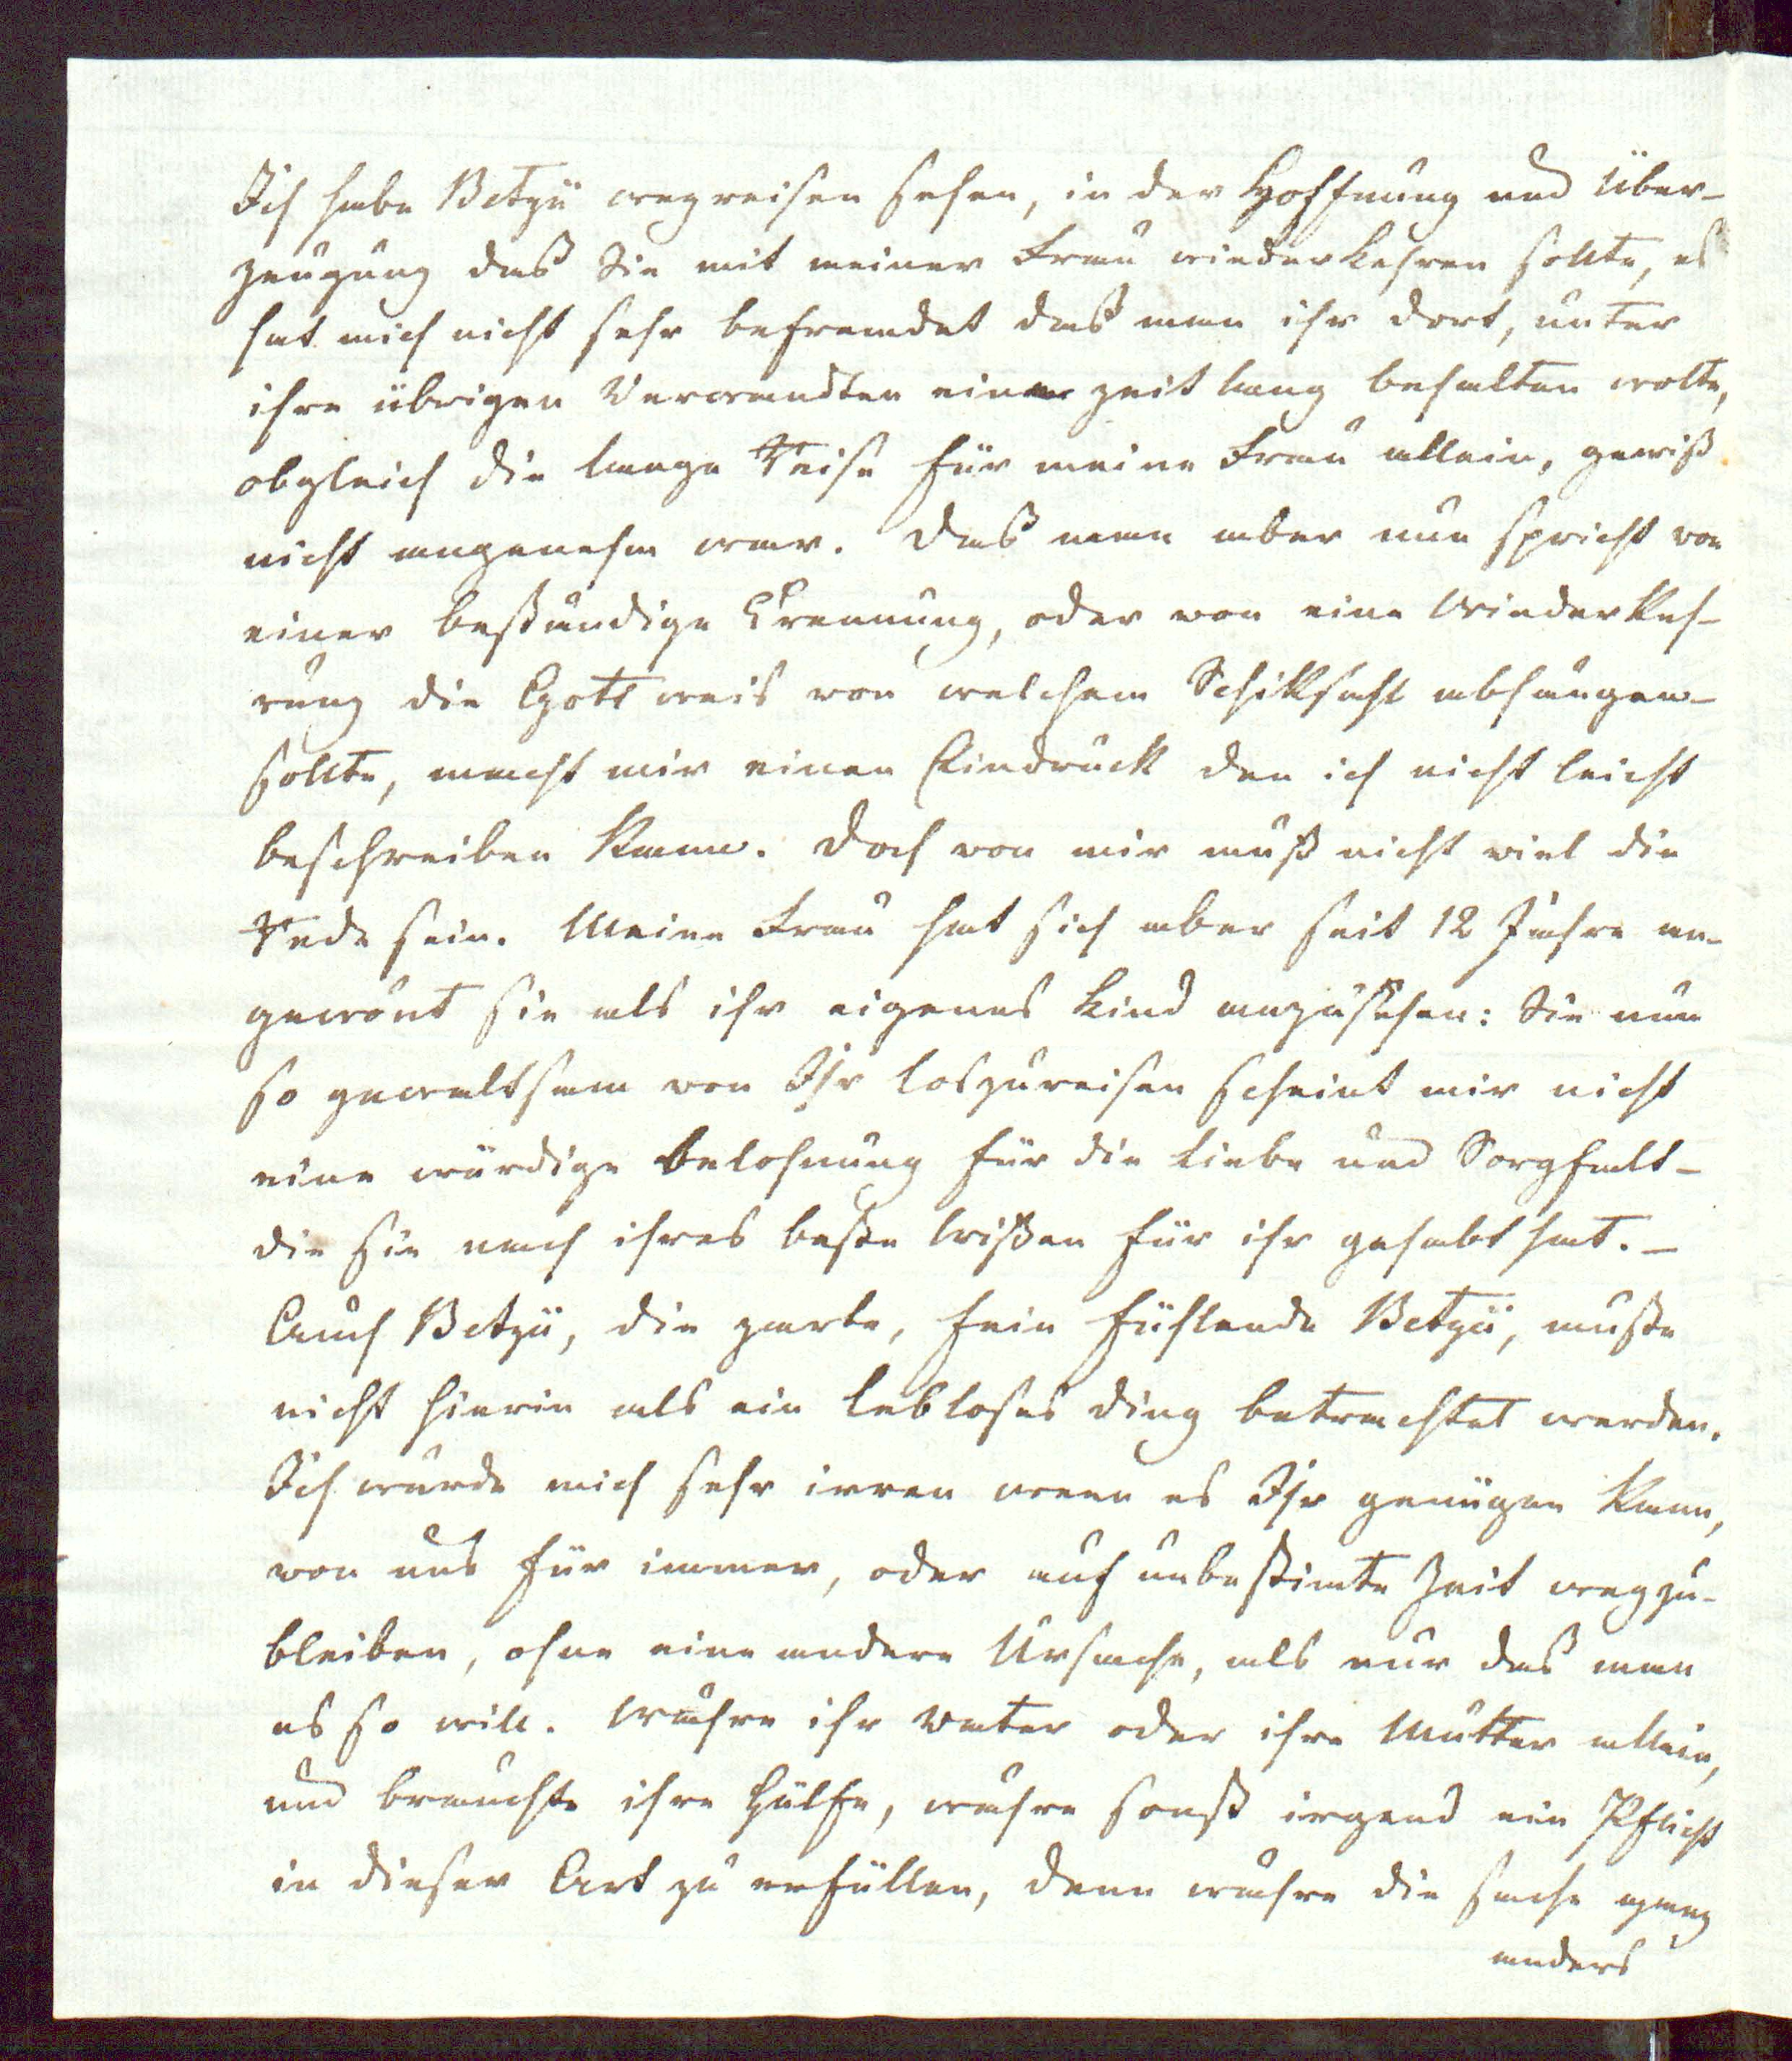 Ich habe Betzÿ wegreisen sehen, in der Hoffnung und Über-
zeugung das Sie mit meiner Frau wiederkehren sollte, es
hat mich nicht sehr befremdet das man ihr dort, unter
ihre übrigen Verwandten eine zeit lang behalten wolte,
obgleich die lange Reise für meine Frau allein, gewiß
nicht angenehm war. Das man aber nun spricht von
einer beständige Trennung, oder von eine Wiederkeh-
rung die Gott weis von welchem Schiksahl abhängen
sollte, macht mir einen Eindruck den ich nicht leicht
beschreiben kann. Doch von mir muß nicht viel die
Rede sein. Meine Frau hat sich aber seit 12 Jahre an-
gewönt sie als ihr eigenes Kind anzusehen: Sie nun
so gewaltsam von Ihr loszureisen scheint mir nicht
eine würdige Belohnung für die Liebe und Sorgfalt-
die sie nach ihres beste Wißen für ihr gehabt hat. -
Auch Betzÿ, die zarte, fein fühlende Betzÿ, muste
nicht hierin als ein lebloses ding betrachtet werden.
Ich würde mich sehr irren wenn es Ihr genügen kann,
von uns für immer, oder auf unbestimte Zeit wegzu-
bleiben, ohne eine andere Ursache, als nur das man
es so will. Währe ihr Vater oder ihre Mutter allein,
und brauchte ihre Hülfe, währe sonst irgend ein Pflicht
in dieser Art zu erfüllen, denn währe die sache ganz
anders